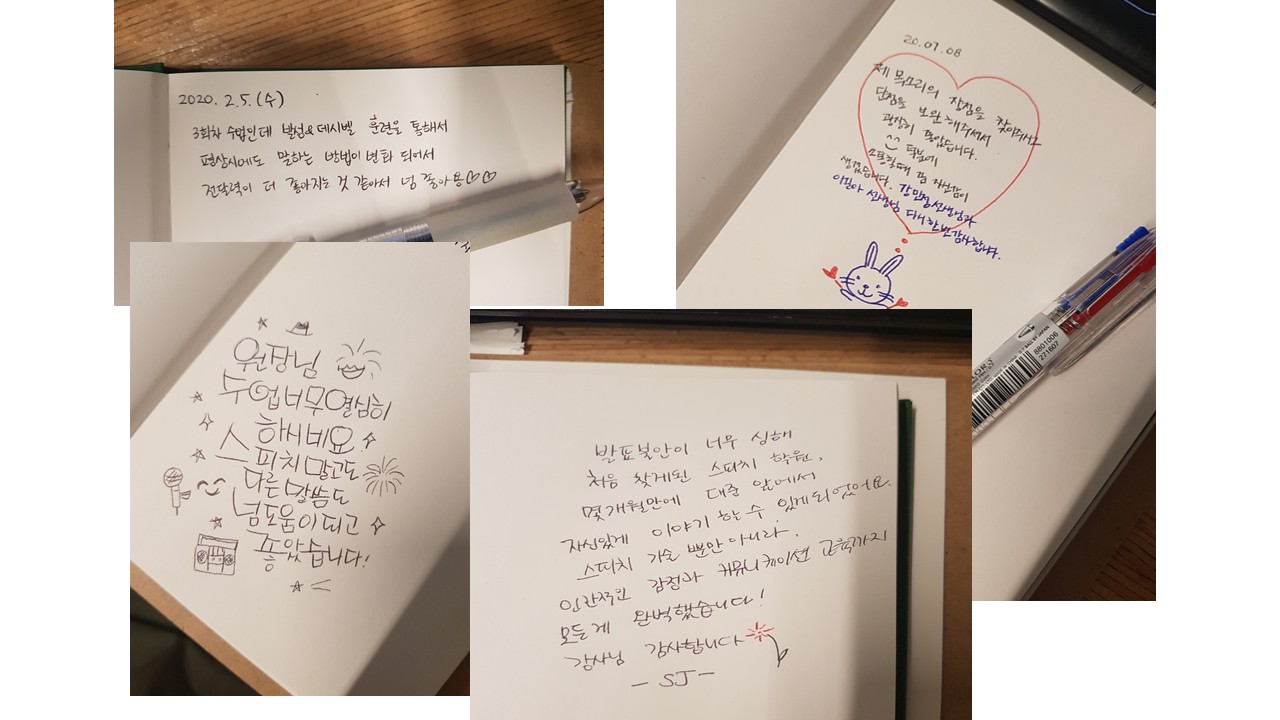 2020. 2.5.(수)
3회차 수업인데 발성&데시벨 훈련을 통해서
평상시에도 말하는 방법이 변화 되어서
전달력이 더 좋아지는 것 같아서 넘 좋아용♡♡
20.07.08
제 목소리의 장점을 찾아주시고
단점을 보완해주셔서
굉장히 좋았습니다.
덕분에
소통할때 더 자신감이
생겼습니다. 강민정 선생님과
선생님 다시한번 감사합니다.
원장님
수업너무열심히
하시네요
스피치말고도
다른 말씀도
넘도움이되고
좋았습니다!
발표불안이 너무 심해
처음 찾게된 스피치 학원.
몇개월만에 대중 앞에서
자신있게 이야기 하는 수 있게되었어요.
스피치 기술 뿐만 아니라,
인간적인 감정과 커뮤니케이션 교육까지
모든게 완벽했습니다!
강사님 감사합니다
- SJ -
8801006
271607